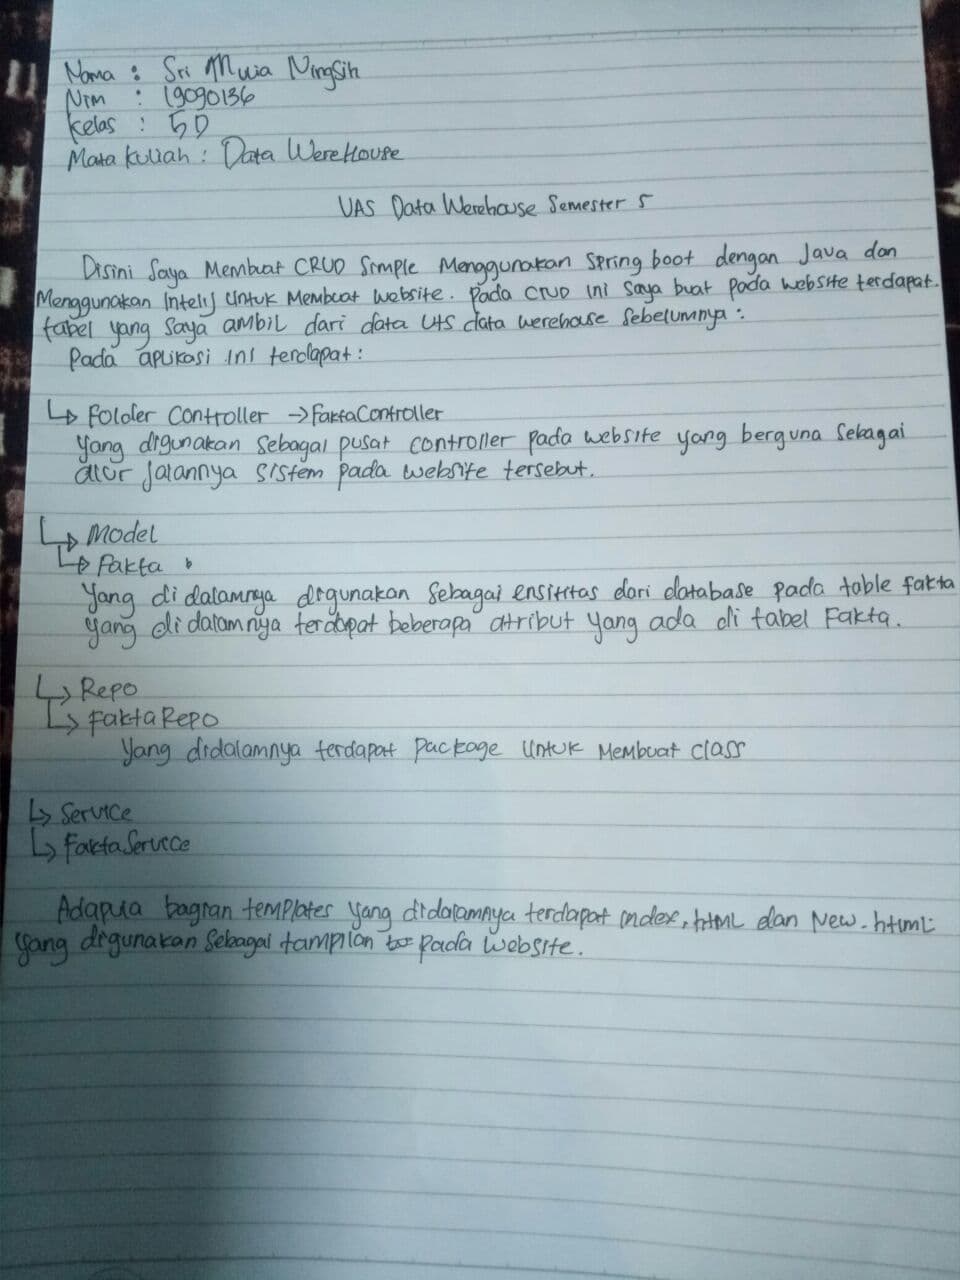 Nama : Sri Mulia Ningsih
Nim : 19090136
Kelas : 5D
Mata kuliah : Data WereHouse
UAS Data Werehouse Semester 5
Disini Saya Membuat CRUD Simple Menggunakan Spring boot dengan Java dan
Menggunakan Intelij Untuk Membuat Website. Pada CRUD ini Saya buat pada website terdapat.
tabel yang saya ambil dari data Uts data werehouse Sebelumnya :
Pada aplikasi ini terdapat :
↳ Folder Controller → FaktaController
Yang digunakan Sebagai pusat controller pada website yang berguna Sebagai
alur jalannya sistem pada website tersebut.
↳ Model
↳ Fakta
Yang di dalamnya digunakan Sebagai ensititas dari database pada table fakta
yang di dalamnya terdapat beberapa atribut yang ada di tabel Fakta.
↳ Repo
↳ FaktaRepo
Yang didalamnya terdapat package Untuk Membuat class
↳ Service
↳ FaktaService
Adapula bagian templates yang didalamnya terdapat index.html dan New.html
yang digunakan Sebagai tampilan pada Website.